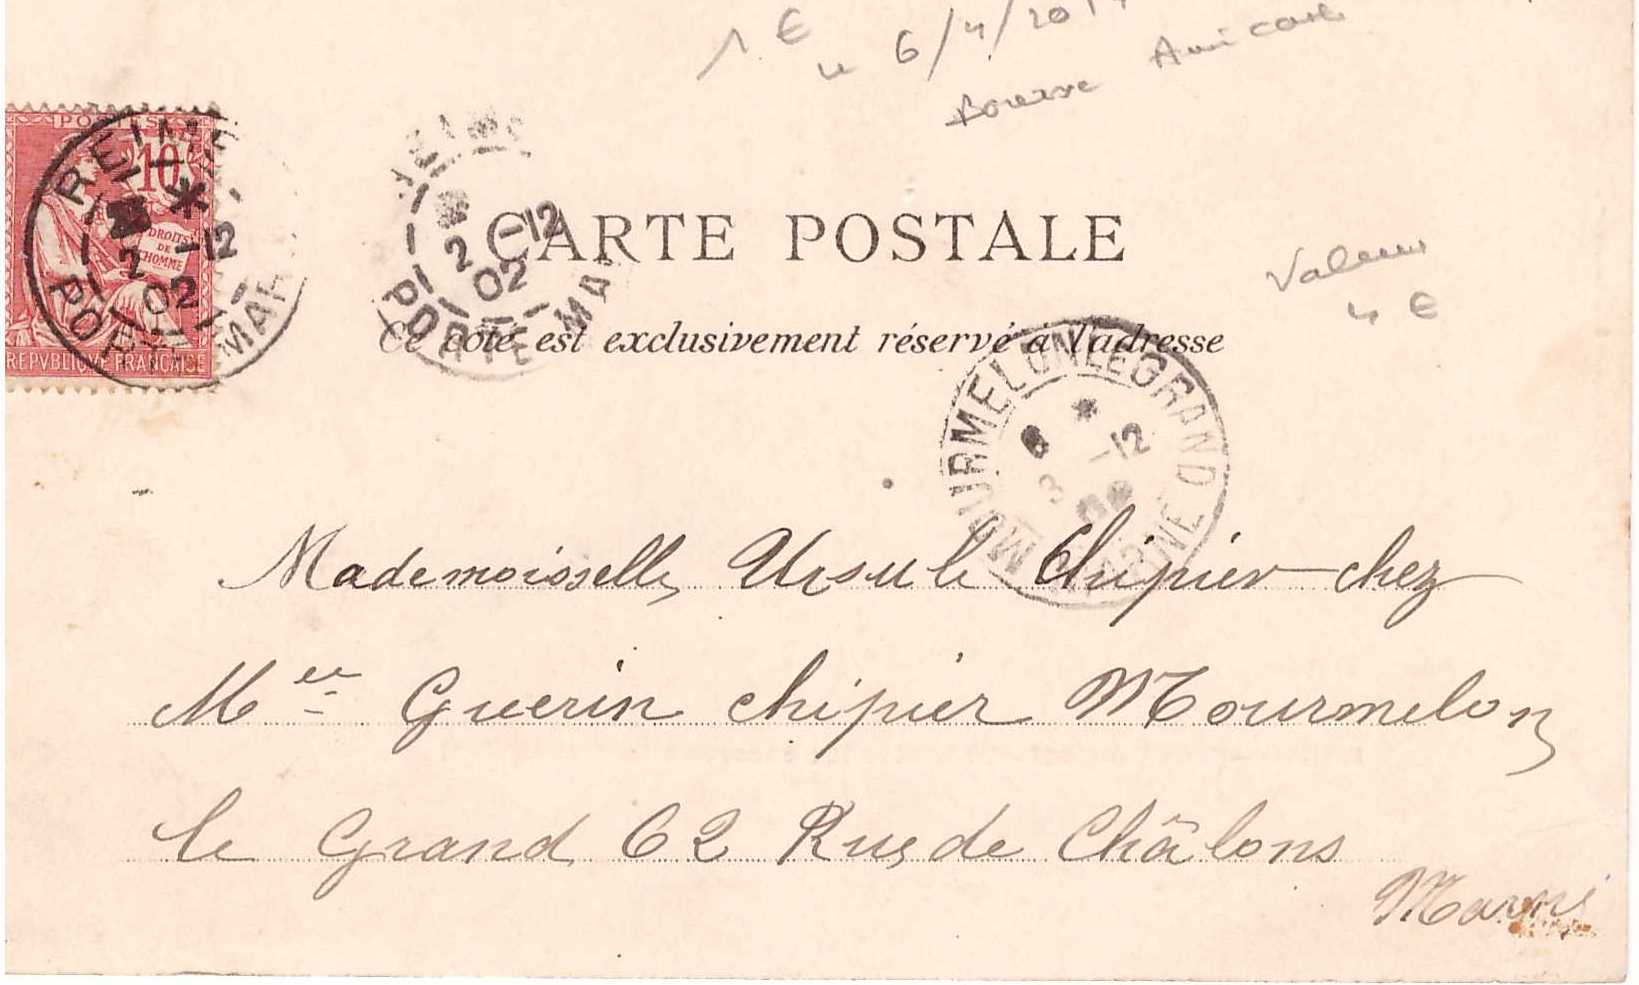 1 €
le 6/4/201
Bourse Amicarte
POSTES
10
DROITS
DE
L'HOMME
REPVBLIQVE FRANÇAISE
REIMS
2 -12
02
PORTE MAR
REIMS
2 -12
02
PORTE MA
CARTE POSTALE
Valeur
4 €
Ce côté est exclusivement réservé à l'adresse
MOURMELON LE GRAND
8 *
3 -12
02
MARNE
Mademoiselle Ursule Chipier chez
Mme Guerin Chipier Mourmelon
le Grand 62 Rue de Châlons
Marne